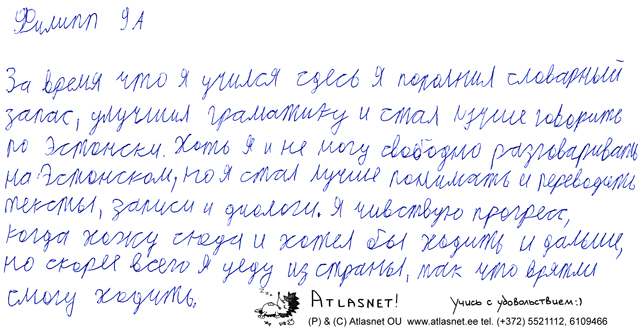 Филипп 9А
За время что я учился здесь я пополнил словарный
запас, улучшил граматику и стал лучше говорить
по Эстонски. Хоть я и не могу свободно разговаривать
на Эстонском, но я стал лучше понимать и переводить
тексты, записи и диологи. Я чивствую прогресс,
когда хожу сюда и хотел бы ходить и дальше,
но скорей всего я уеду из страны, так что врятли
смогу ходить.
ATLASNET! Учись с удовольствием:)
(P) & (C) Atlasnet OU www.atlasnet.ee tel. (+372) 5521112, 6109466